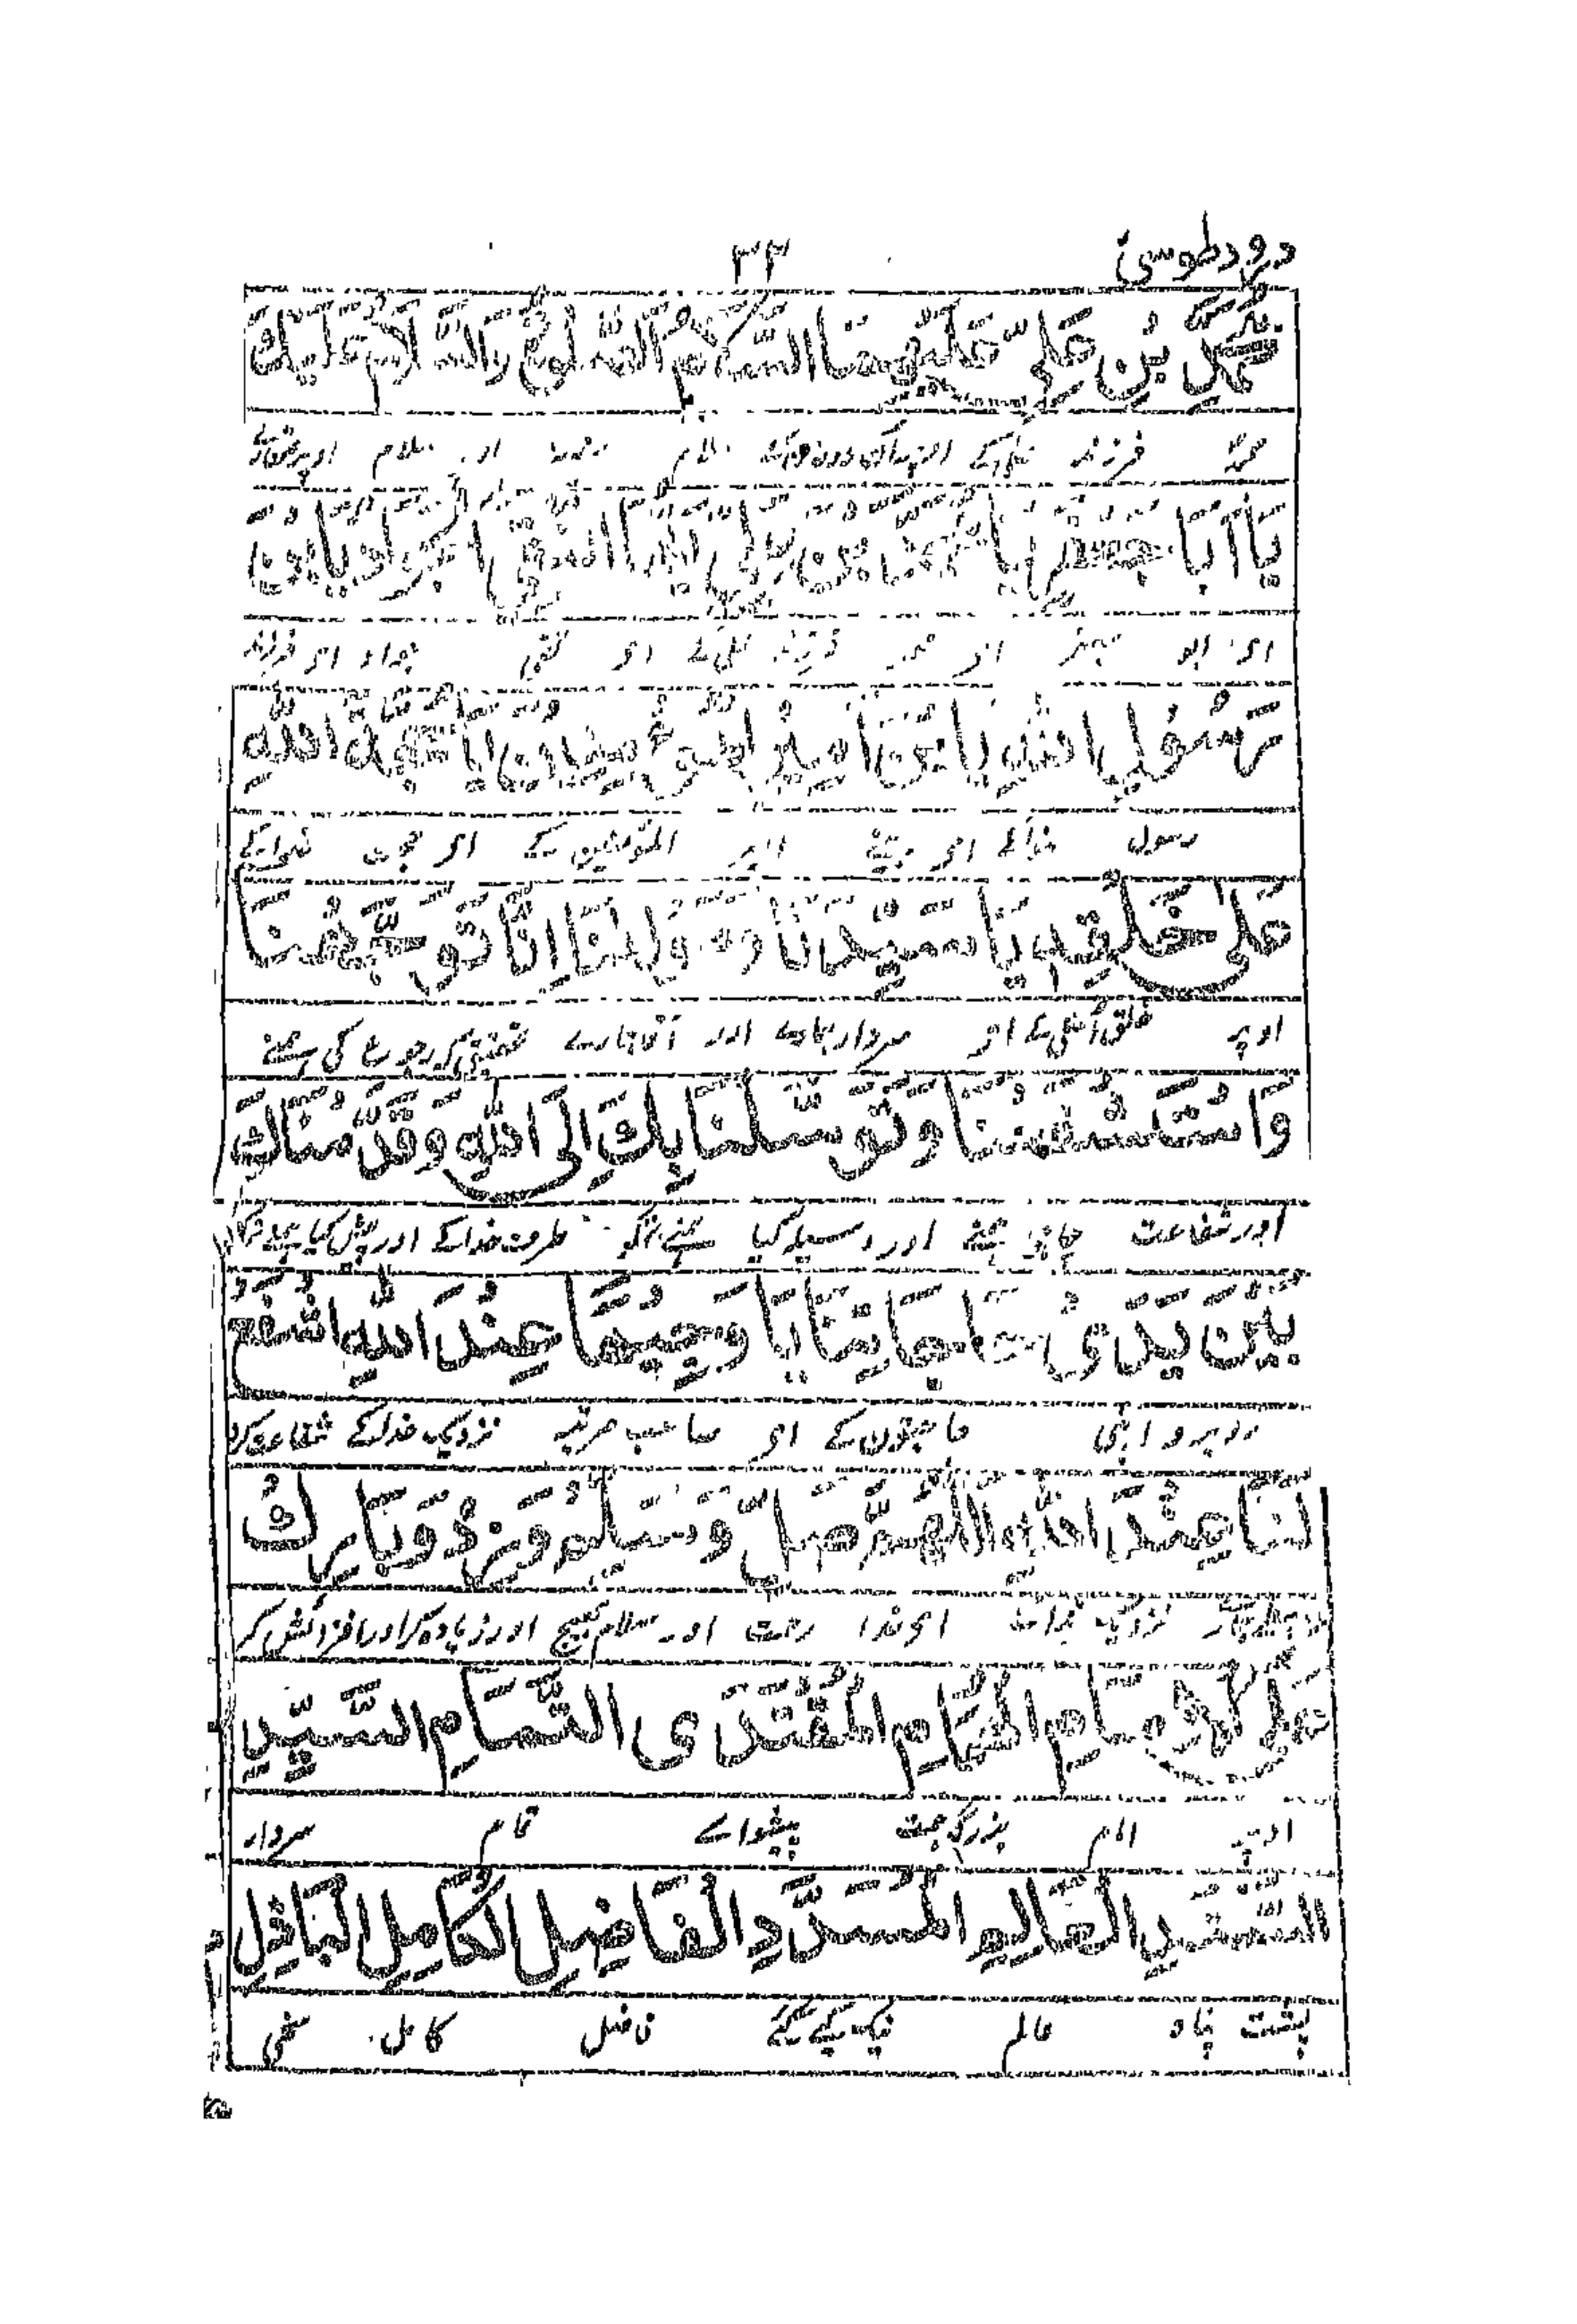 درود طوسی ۳۳
مُحَمَّدِ بْنِ عَلِيٍّ عَلَيْهِمَا السَّلَامُ اَلصَّلٰوةُ وَالسَّلَامُ عَلَيْكَ
محمد فرزند علی کے اوپر اُن دونوں کے سلام رحمت اور سلام اوپر تمہارے
يَا اَبَا جَعْفَرٍ يَا مُحَمَّدَ بْنَ عَلِيٍّ اَيُّهَا التَّقِيُّ الْجَوَادُ يَا ابْنَ
ای ابو جعفر ای محمد فرزند علی کے ای تقی جواد ای فرزند
رَسُوْلِ اللهِ يَا ابْنَ اَمِيْرِ الْمُؤْمِنِيْنَ يَا حُجَّةَ اللهِ
رسول خدا کے ای بیٹے امیر المؤمنین کے ای حجت خدا کے
عَلٰى خَلْقِهٖ يَا سَيِّدَنَا وَمَوْلٰنَا اِنَّا تَوَجَّهْنَا
اوپر خلق اُسکی کے ای سردار ہمارے اور آقا ہمارے تحقیق کہ رجوع کی ہمنے
وَاسْتَشْفَعْنَا وَتَوَسَّلْنَا بِكَ اِلَى اللهِ وَقَدَّمْنَاكَ
اور شفاعت چاہی ہمنے اور وسیلہ کیا ہمنے تمکو طرف خدا کے اور پیش کیا ہمنے تمکو
بَيْنَ يَدَيْ حَاجَاتِنَا يَا وَجِيْهًا عِنْدَ اللهِ اشْفَعْ
روبرو اپنی حاجتوں کے ای صاحب مرتبہ نزدیک خدا کے شفاعت کرو
لَنَا عِنْدَ اللهِ اَللّٰهُمَّ صَلِّ وَسَلِّمْ وَزِدْ وَبَارِكْ
نزدیک خدا کے ای خدا رحمت اور سلام بھیج اور زیادہ کر اور افزائش کر
عَلَى الْاِمَامِ الْهُمَامِ الْمُقْتَدَى التَّمَامِ السَّيِّدِ
اوپر امام بزرگ ہمت پیشواے تمام سردار
السَّنَدِ الْعَالِمِ الْمُسَدَّدِ الْفَاضِلِ الْكَامِلِ الْبَاذِلِ
پشت پناہ عالم نیک کیے گئے فاضل کامل سخی